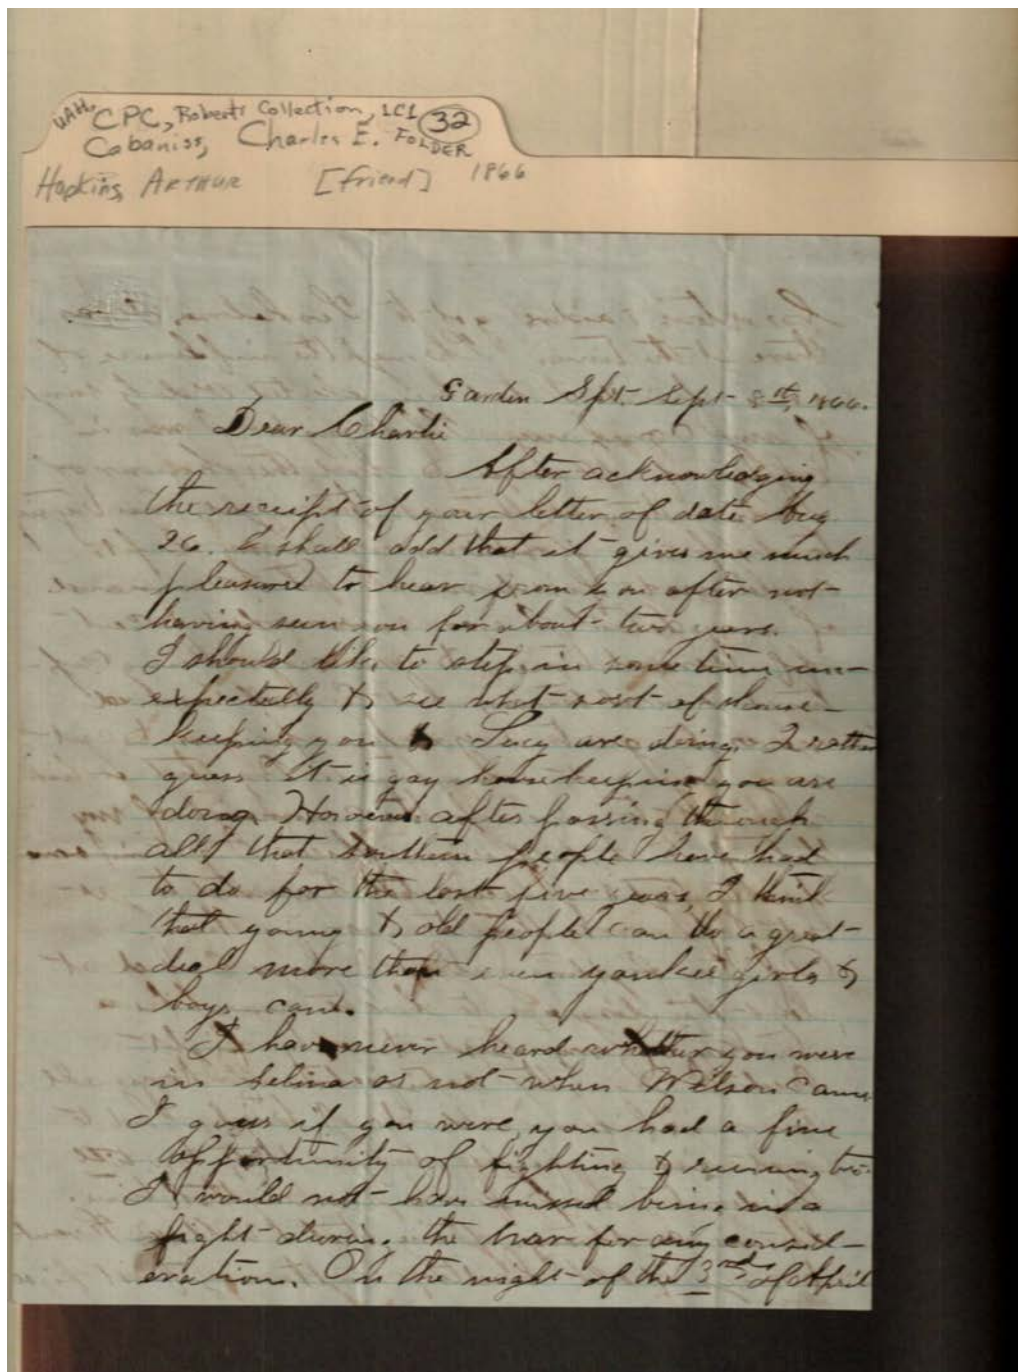 UAH. CPC, Roberts Collection, 1C1 32
Cabaniss, Charles E. FOLDER
Hopkins, Arthur [friend] 1866
Garden Spt. Sept 8th, 1866.
Dear Charlie
After acknowledging
the receipt of your letter of date Aug
26. I shall add that it gives me much
pleasure to hear from you after not
having seen you for about two years.
I should like to step in some time un-
expectedly & see what sort of house-
keeping you & Lucy are doing. I rather
guess it is gay housekeeping you are
doing. However after passing through
all that southern people have had
to do for the last five years, I think
that young & old people can do a great
deal more than even yankee girls &
boys can.
I have never heard whether you were
in Selma or not when Wilson came
I guess if you were you had a fine
opportunity of fighting & running too.
I would not have missed being in a
fight during the war for any consid-
eration. On the night of the 3rd of April